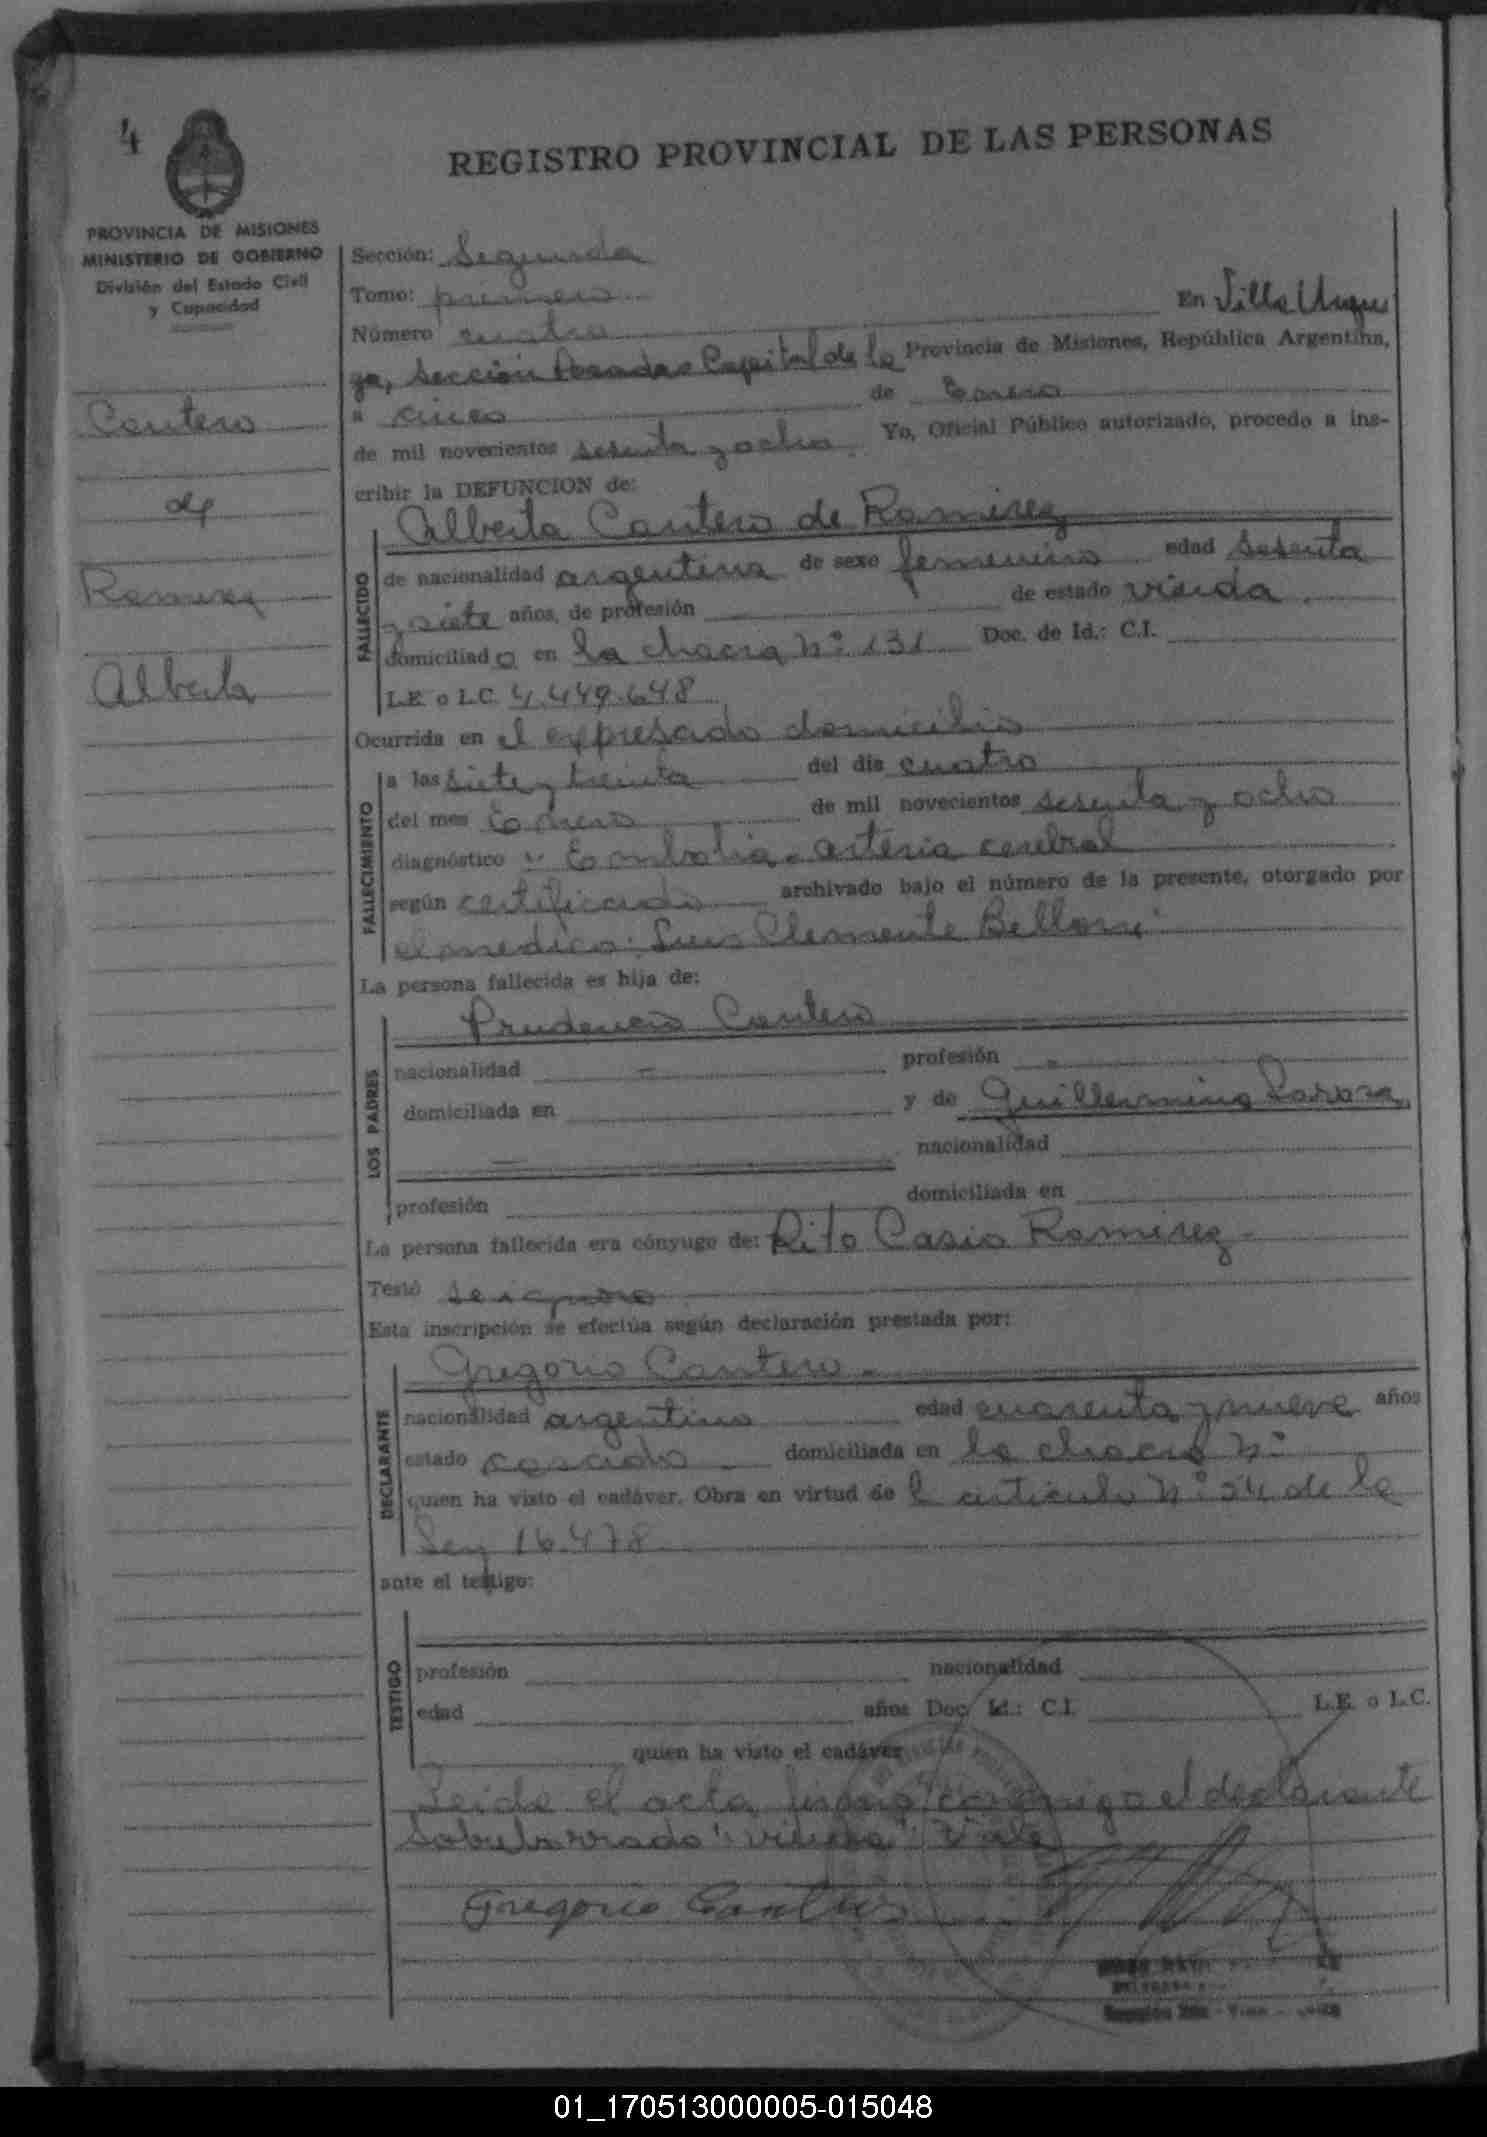 4
REGISTRO PROVINCIAL DE LAS PERSONAS
PROVINCIA DE MISIONES
MINISTERIO DE GOBIERNO
División del Estado Civil
y Capacidad
Cantero
de
Ramirez
Alberta
Sección: Segunda
Tomo: primero
En Villa Urqui
Número cuatro
za, Sección Posadas Capital de la Provincia de Misiones, República Argentina,
a cinco de Enero
de mil novecientos sesenta y ocho Yo, Oficial Público autorizado, procedo a ins-
cribir la DEFUNCION de:
Alberta Cantero de Ramirez
FALLECIDO
de nacionalidad argentina de sexo femenino edad sesenta
y siete años, de profesión de estado viuda.
domiciliado en la chacra Nº 131 Doc. de Id.: C.I.
L.E. o L.C. 4.449.648
Ocurrida en el expresado domicilio
FALLECIMIENTO
a las siete y treinta del día cuatro
del mes Enero de mil novecientos sesenta y ocho
diagnóstico Embolia - arteria cerebral
según certificado archivado bajo el número de la presente, otorgado por
el medico: Luis Clemente Belloni
La persona fallecida es hija de:
LOS PADRES
Prudencio Cantero
nacionalidad - profesión -
domiciliada en y de Guillermina
nacionalidad
profesión domiciliada en
La persona fallecida era cónyuge de: Rito Casio Ramirez -
Testó se ignora
Esta inscripción se efectúa según declaración prestada por:
DECLARANTE
Gregorio Cantero -
nacionalidad argentino edad cuarenta y nueve años
estado casado - domiciliada en la chacra Nº
quien ha visto el cadáver. Obra en virtud de l articulo Nº 54 de la
Ley 16.478
ante el testigo:
TESTIGO
profesión nacionalidad
edad años Doc. Id.: C.I. L.E. o L.C.
quien ha visto el cadáver
Leida el acta firma conmigo el declarante
Sobreborrado "viuda" Vale
Gregorio Cantero
01_170513000005-015048